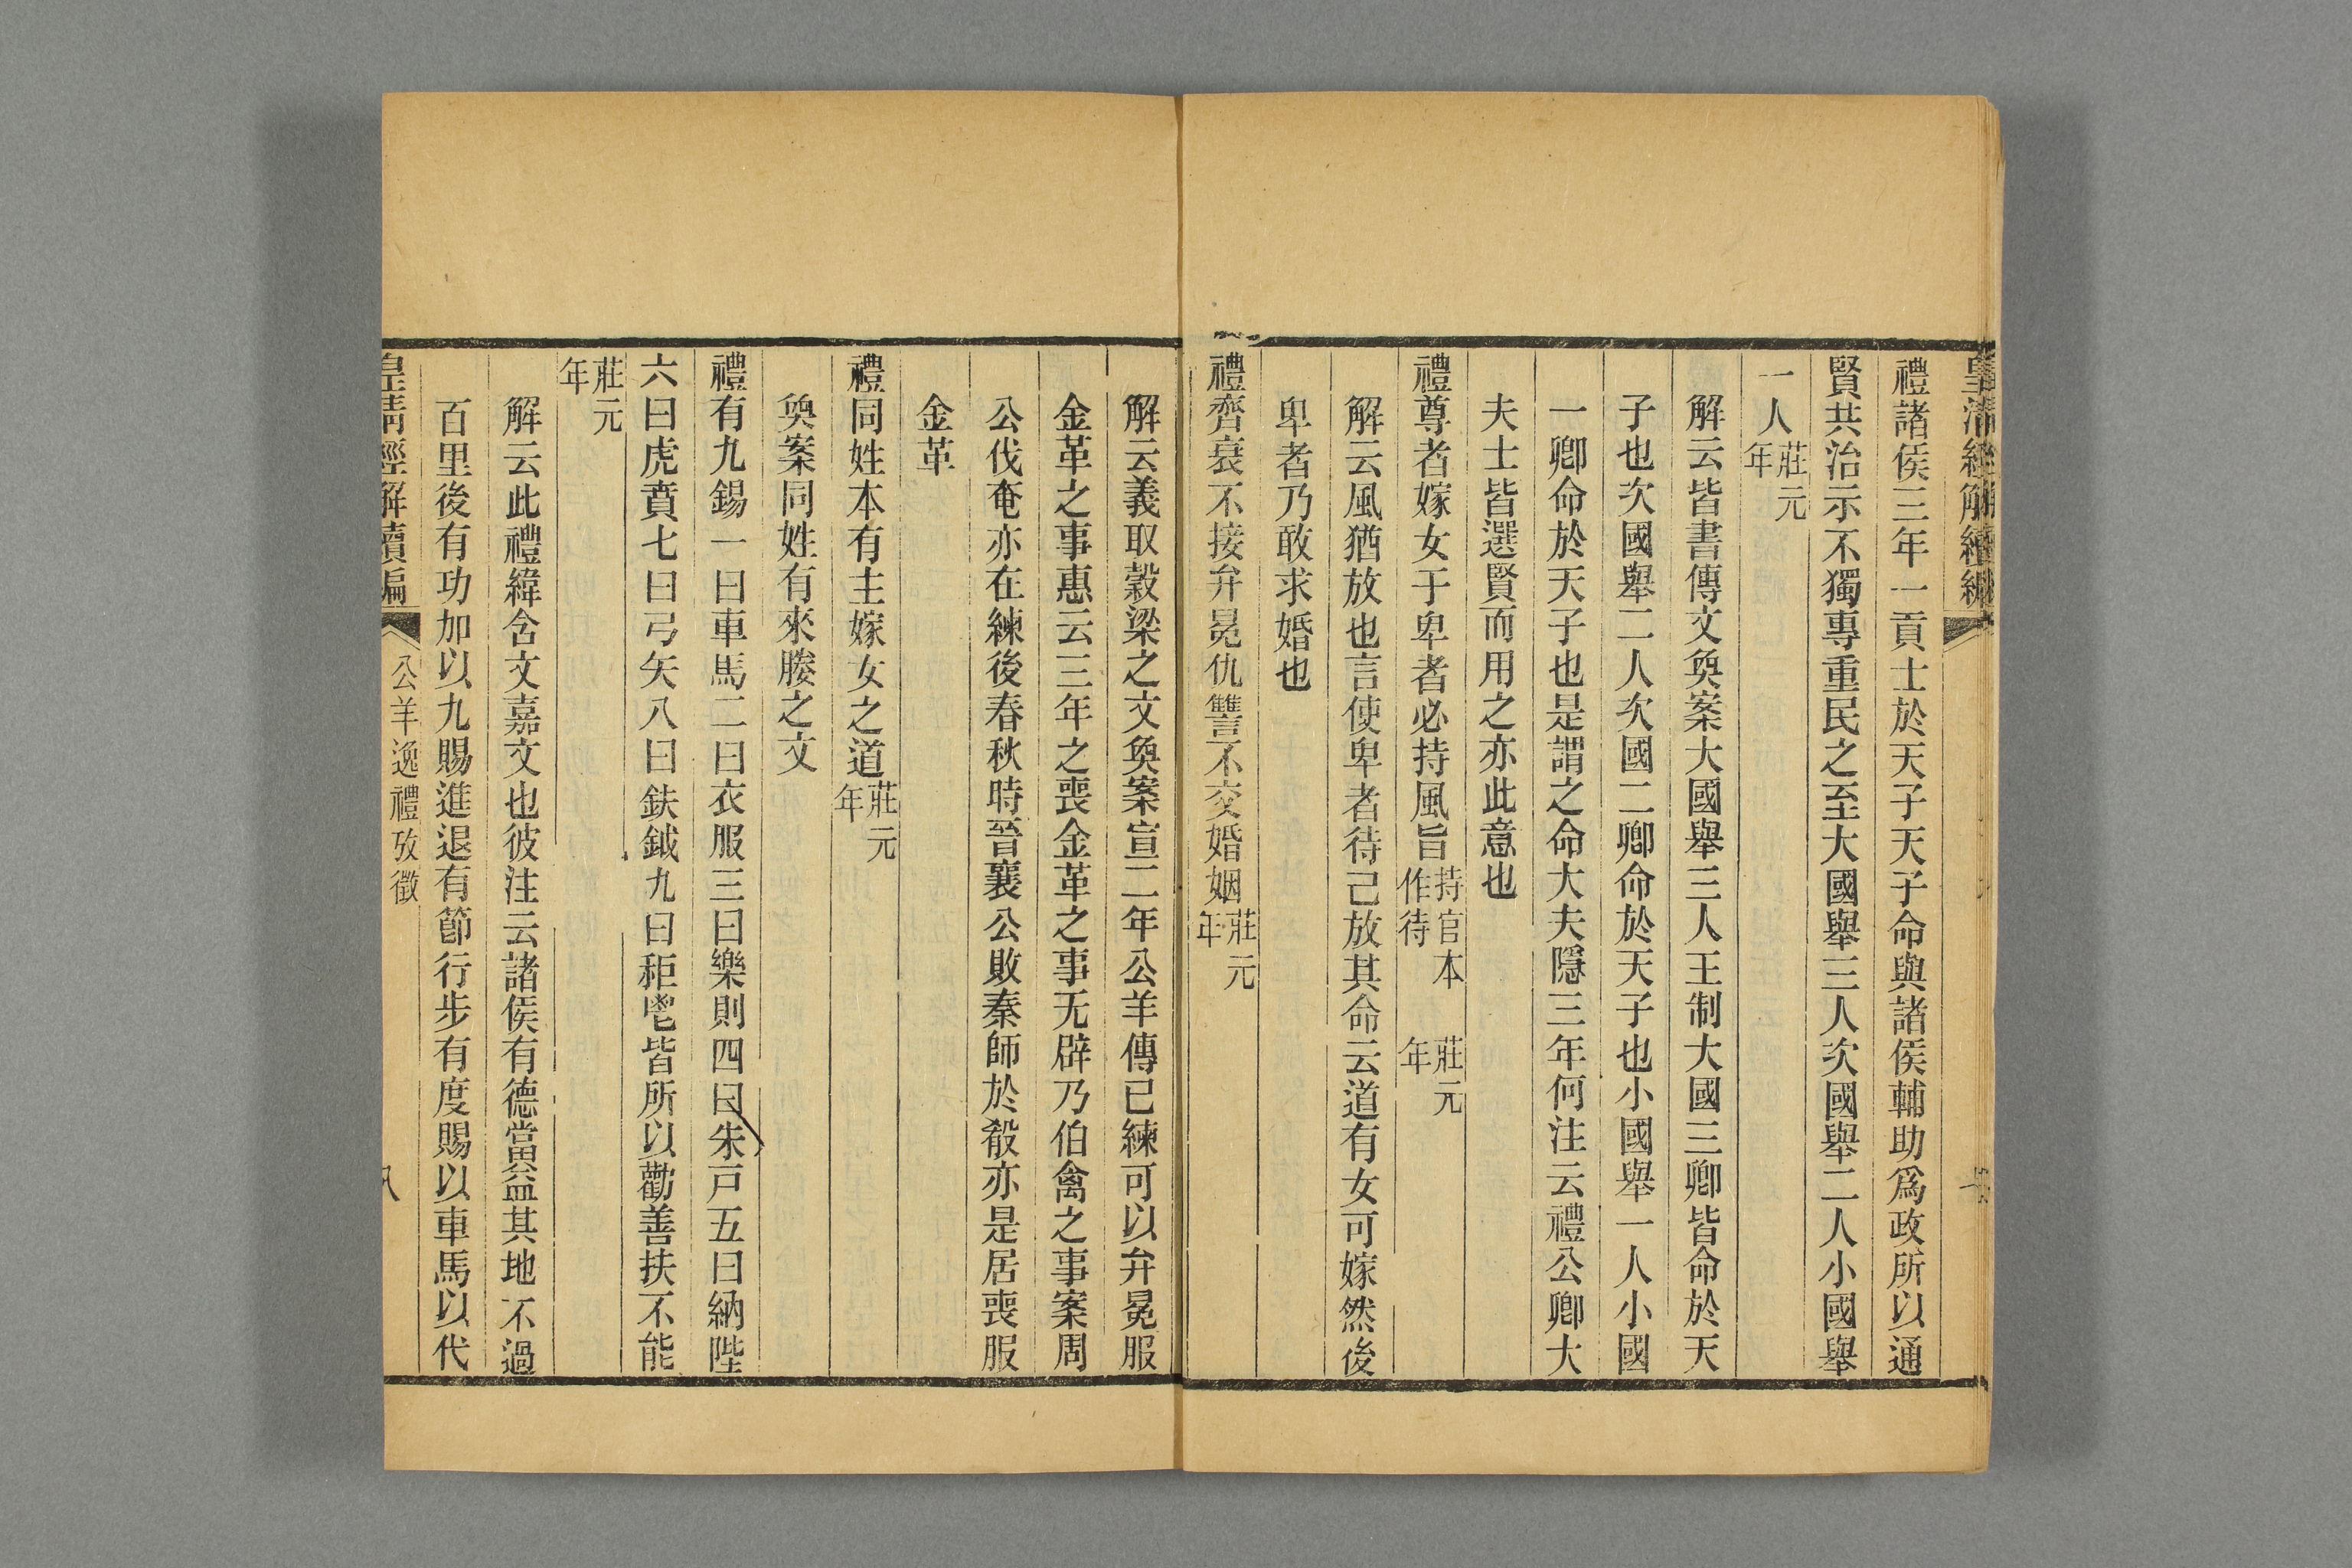 皇清經解續編
禮諸侯三年一貢士於天子天子命與諸侯輔助爲政所以通
賢共治示不獨專重民之至大國舉三人次國舉二人小國舉
一人莊元年
解云皆書傳文奐案大國舉三人王制大國三卿皆命於天
子也次國舉二人次國二卿命於天子也小國舉一人小國
一卿命於天子也是謂之命大夫隱三年何注云禮公卿大
夫士皆選賢而用之亦此意也
禮尊者嫁女于卑者必持風旨持官本作待 莊元年
解云風猶放也言使卑者待己放其命云道有女可嫁然後
卑者乃敢求婚也
禮齊衰不接弁冕仇讐不交婚姻莊元年
解云義取榖梁之文奐案宣二年公羊傳已練可以弁冕服
金革之事惠云三年之喪金革之事无辟乃伯禽之事案周
公伐奄亦在練後春秋時晉襄公敗秦師於殽亦是居喪服
金革
禮同姓本有主嫁女之道莊元年
奐案同姓有來媵之文
禮有九錫一曰車馬二曰衣服三曰樂則四曰朱戸五曰納陛
六曰虎賁七曰弓矢八曰鈇鉞九曰秬鬯皆所以勸善扶不能
莊元年
解云此禮緯含文嘉文也彼注云諸侯有德當益其地不過
百里後有功加以九賜進退有節行步有度賜以車馬以代
皇清經解續編
公羊逸禮攷徵
八